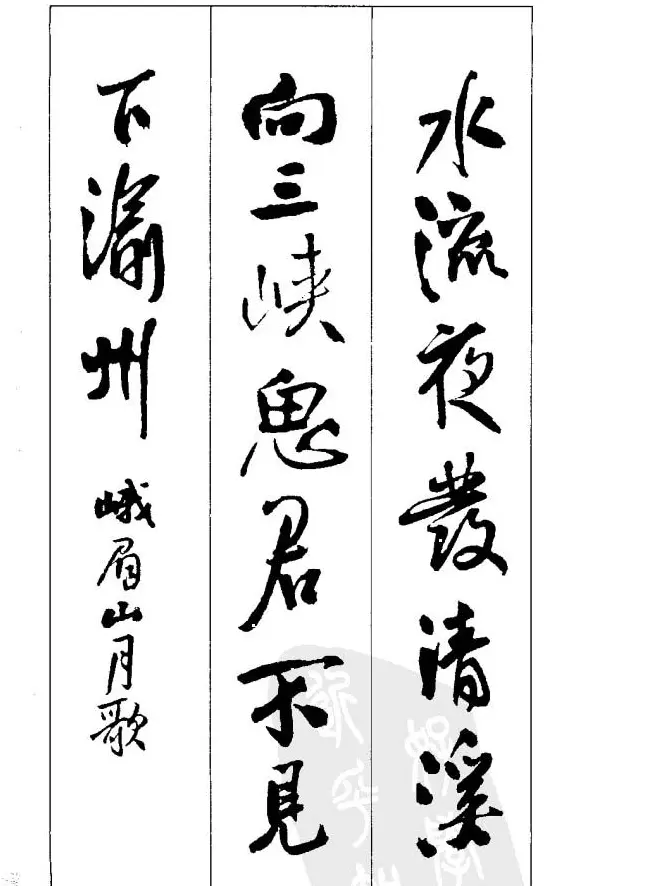 水流夜發清溪
向三峽思君不見
下渝州
峨眉山月歌